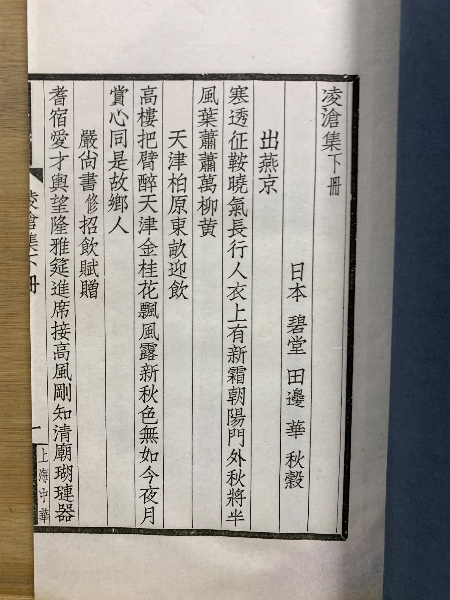 凌滄集下冊
日本 碧堂 田邊 華 秋穀
出燕京
塞透征鞍曉氣長行人衣上有新霜朝陽門外秋將半
風葉蕭蕭萬柳黃
天津柏原東畝迎飲
高樓把臂醉天津金桂花飄風露新秋色無如今夜月
賞心同是故鄉人
嚴尙書修招飲賦贈
耆宿愛才輿望隆雅筵進席接高風剛知清廟瑚璉器
凌滄集下冊
一
上海中華